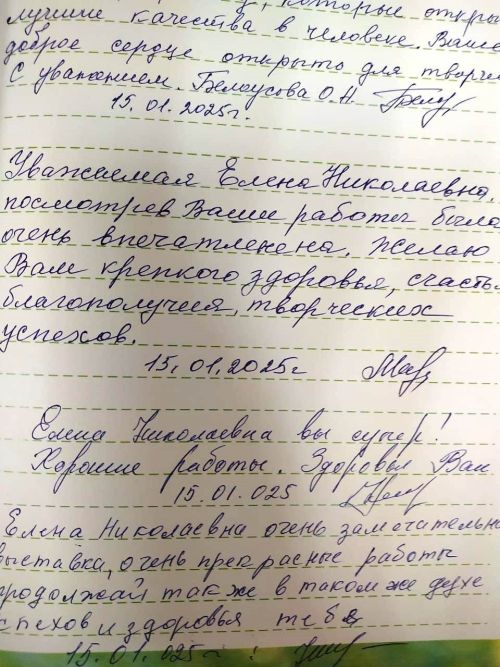 которые откры
лучшие качества в человеке. Ваше
доброе сердце открыто для творче
С уважением. Белоусова О.Н.
15.01.2025г.
Уважаемая Елена Николаевна,
посмотрев Ваши работы была
очень впечатленена. Желаю
Вам крепкого здоровья, счасть
благополучия, творческих
успехов.
15.01.2025г
Елена Николаевна вы супер!
Хорошие работы. Здоровья Вам
15.01.025
Елена Николаевна очень замечательна
выставка, очень прекрасные работы
продолжай также в таком же духе
спехов и здоровья тебя
15.01.025г